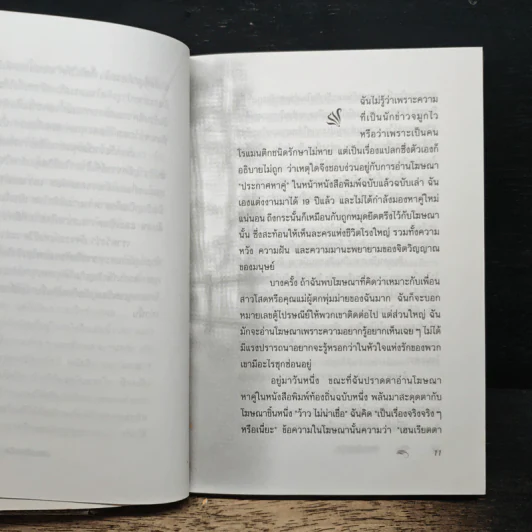 ฉันไม่รู้ว่าเพราะความ
ที่เป็นนักข่าวจมูกไว
หรือว่าเพราะเป็นคน
โรแมนติกชนิดรักษาไม่หาย แต่เป็นเรื่องแปลกซึ่งตัวเองก็
อธิบายไม่ถูก ว่าเหตุใดจึงชอบง่วนอยู่กับการอ่านโฆษณา
"ประกาศหาคู่" ในหน้าหนังสือพิมพ์ฉบับแล้วฉบับเล่า ฉัน
เองแต่งงานมาได้ 19 ปีแล้ว และไม่ได้กำลังมองหาคู่ใหม่
แน่นอน ถึงกระนั้นก็เหมือนกับถูกหมุดยึดตรึงไว้กับโฆษณา
นั้น ซึ่งสะท้อนให้เห็นละครแห่งชีวิตโรงใหญ่ รวมทั้งความ
หวัง ความฝัน และความมานะพยายามของจิตวิญญาณ
ของมนุษย์
บางครั้ง ถ้าฉันพบโฆษณาที่คิดว่าเหมาะกับเพื่อน
สาวโสดหรือคุณแม่ผู้ตกพุ่มม่ายของฉันมาก ฉันก็จะบอก
หมายเลขตู้ไปรษณีย์ให้พวกเขาติดต่อไป แต่ส่วนใหญ่ ฉัน
มักจะอ่านโฆษณาเพราะความอยากรู้อยากเห็นเฉย ๆ ไม่ได้
มีแรงปรารถนาอยากจะรู้หรอกว่าในหัวใจแห่งรักของพวก
เขามีอะไรซุกซ่อนอยู่
อยู่มาวันหนึ่ง ขณะที่ฉันปราดตาอ่านโฆษณา
หาคู่ในหนังสือพิมพ์ท้องถิ่นฉบับหนึ่ง พลันมาสะดุดตากับ
โฆษณาชิ้นหนึ่ง "ว้าว ไม่น่าเชื่อ" ฉันคิด "เป็นเรื่องจริงจริง ๆ
หรือเนี่ยะ" ข้อความในโฆษณานั้นความว่า "เฮนเรียตตา
11